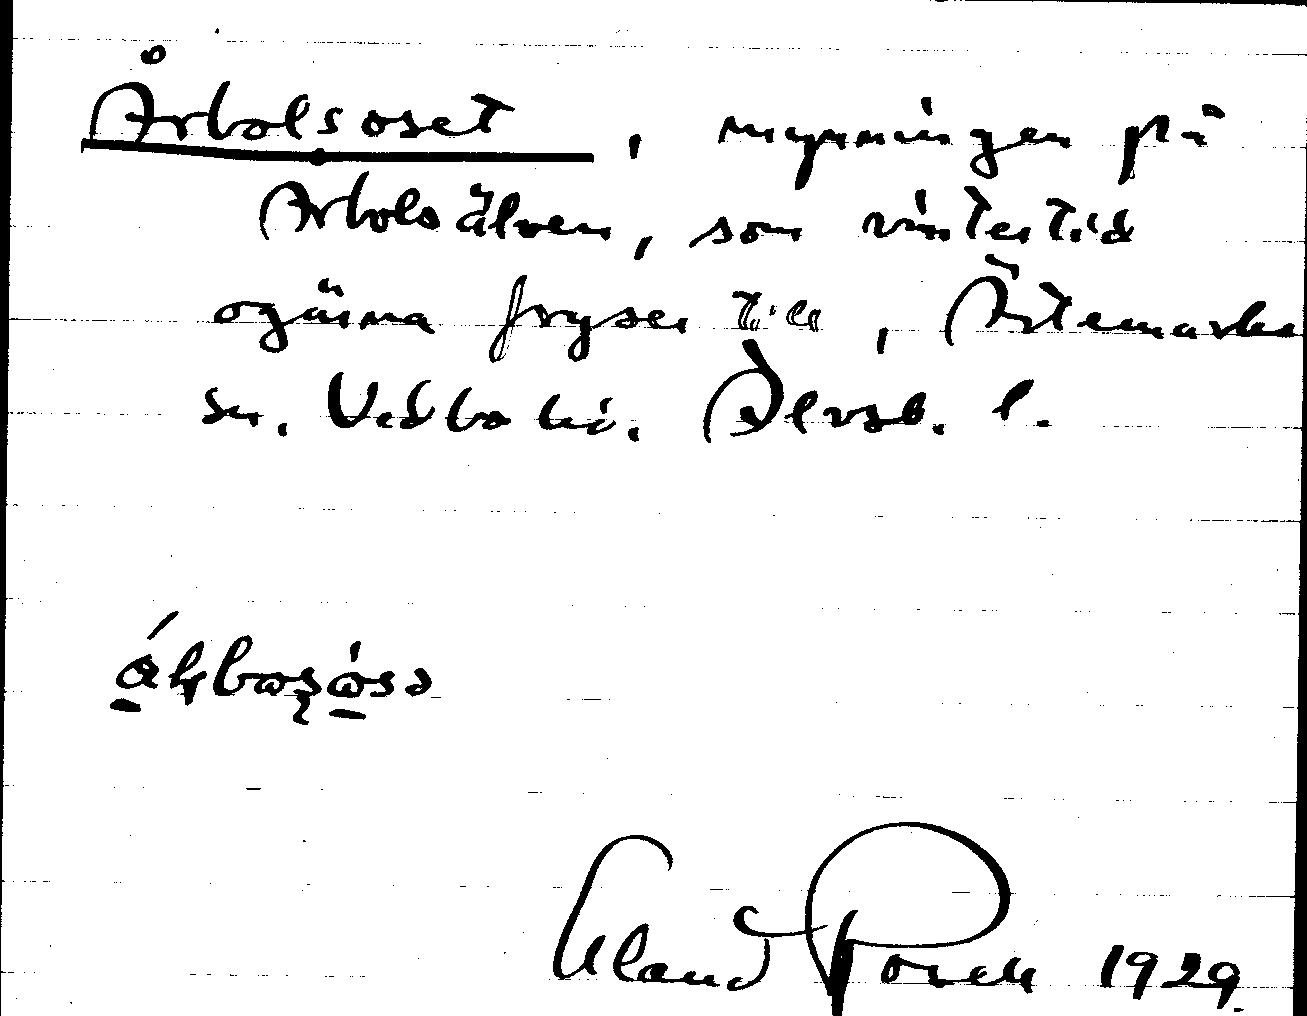 Årbolsoset, mynningen på
Årbolsälven, som vintertid
ogärna fryser till, Ärtemarks
sn. Vedbo hd. Älvsb. l.
Eland Rosell 1929.